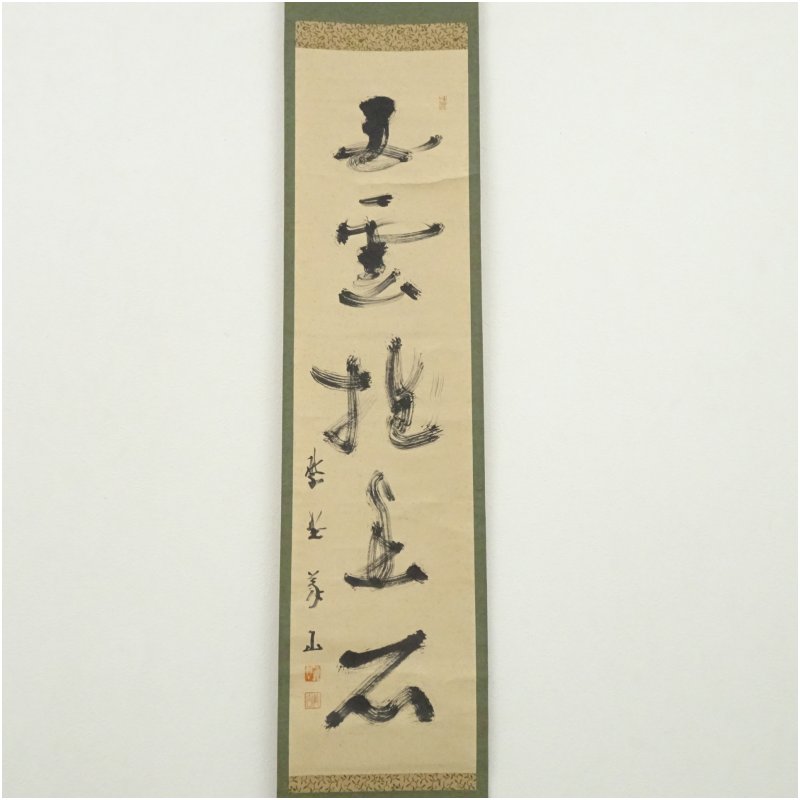 白雲抱幽石
紫野義山